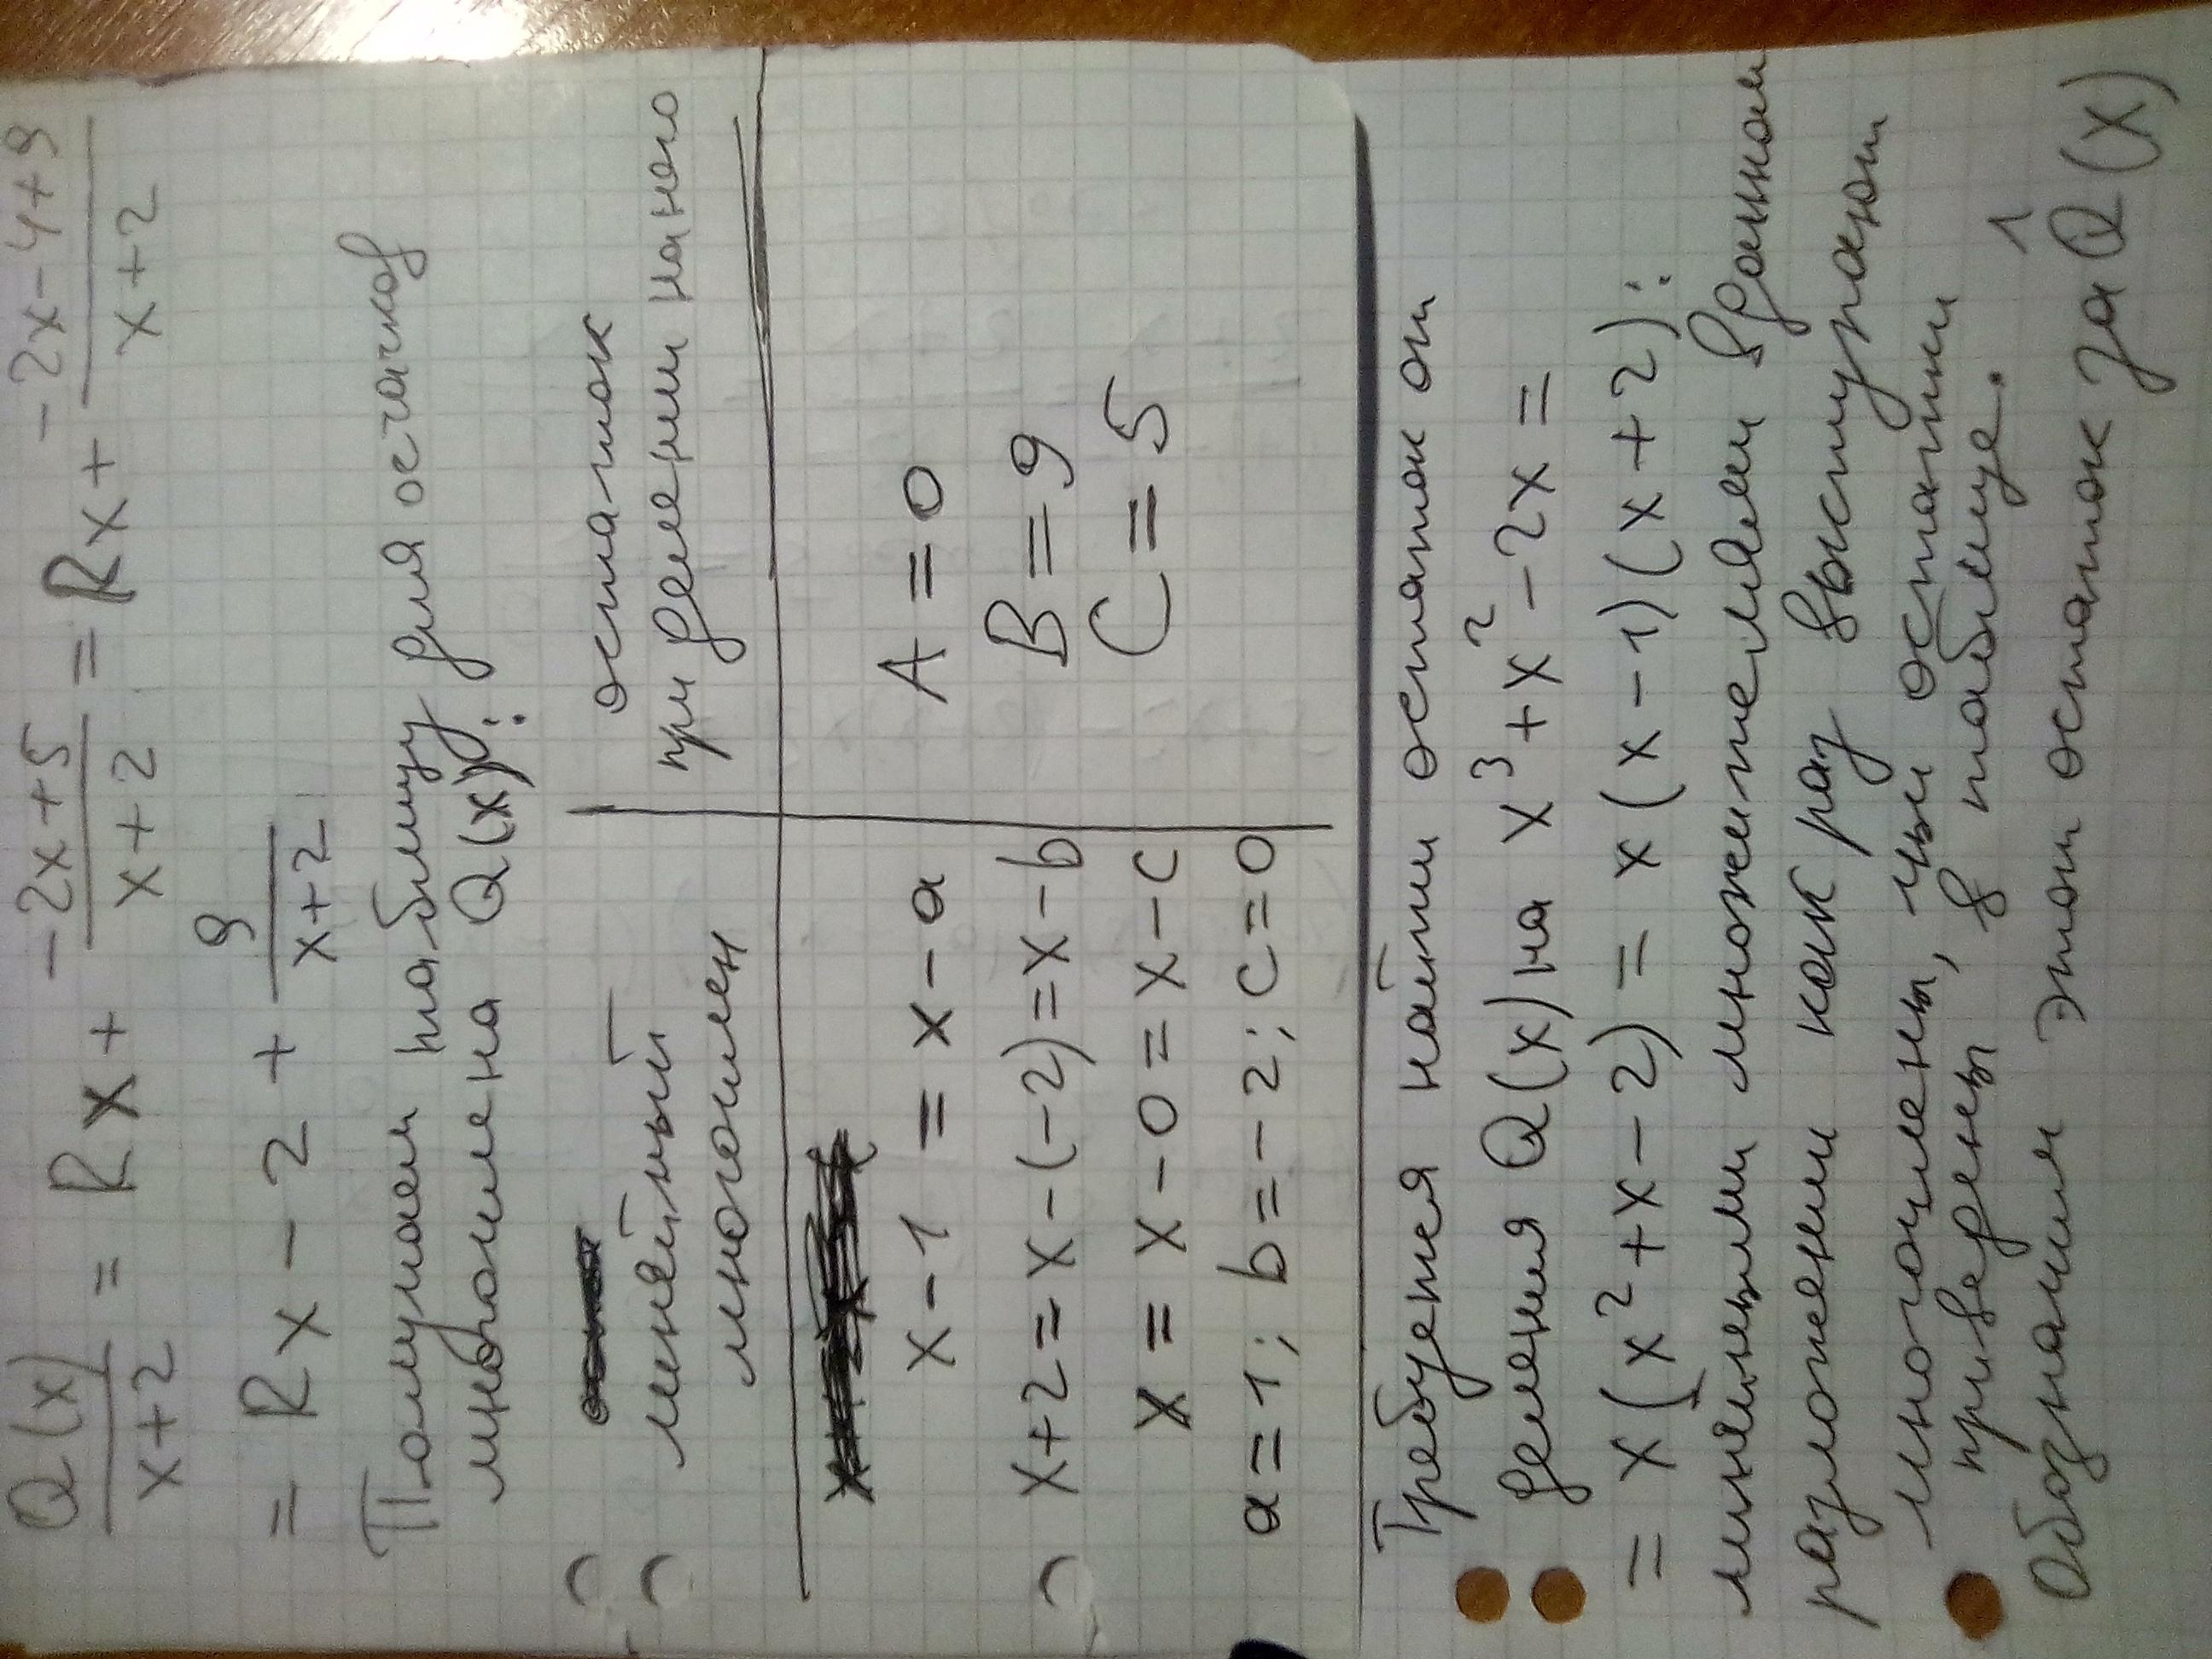 Q(x)/(x+2) = Rx + (-2x+5)/(x+2) = Rx + (-2x-4+9)/(x+2)
= Rx - 2 + 9/(x+2)
Получаем таблицу для остатков
многочлена Q(x):
линейный
многочлен
остаток
при делении на него
x-1 = x-a
A = 0
x+2 = x-(-2) = x-b
B = 9
x = x-0 = x-c
C = 5
a=1; b=-2; c=0
Требуется найти остаток от
деления Q(x) на x³+x²-2x =
= x(x²+x-2) = x(x-1)(x+2):
линейными множителями в данном
разложении как раз выступают
многочлены, чьи остатки
приведены в таблице.
Обозначим этот остаток за Q̂(x)